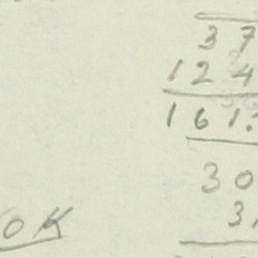 37
124
161
30
3
OK